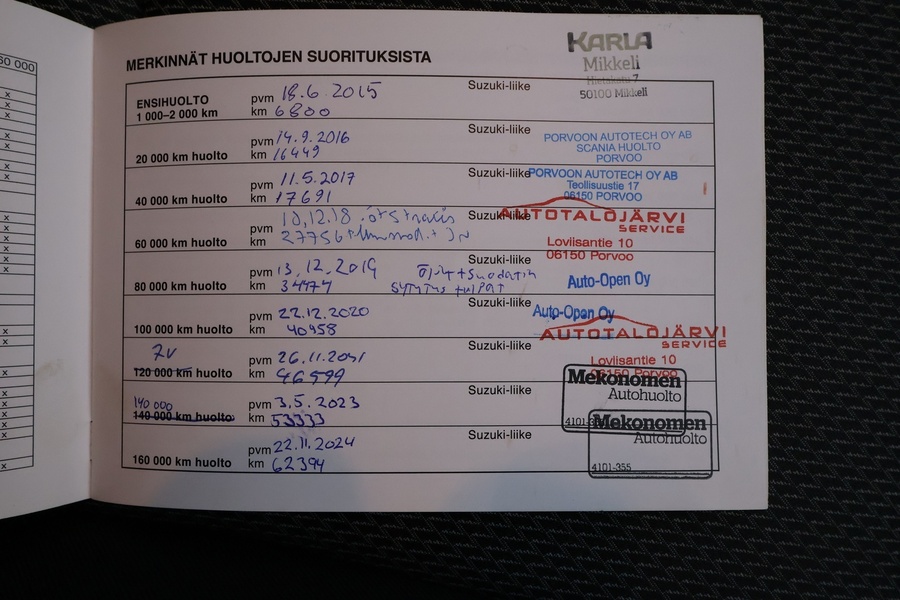 60 000
MERKINNÄT HUOLTOJEN SUORITUKSISTA
KARLA
Mikkeli
50100 Mikkeli
ENSIHUOLTO
1 000–2 000 km
pvm 18.6.2015
km 6800
Suzuki-liike
20 000 km huolto
pvm 14.9.2016
km 16449
Suzuki-liike
PORVOON AUTOTECH OY AB
SCANIA HUOLTO
PORVOO
40 000 km huolto
pvm 11.5.2017
km 17691
Suzuki-liike
PORVOON AUTOTECH OY AB
Teollisuustie 17
06150 PORVOO
60 000 km huolto
pvm 10.12.18
km 27756
Suzuki-liike
AUTOTALOJÄRVI
SERVICE
Loviisantie 10
06150 Porvoo
80 000 km huolto
pvm 13.12.2019 Öljyt+suodatin
km 34474 sytytys tulpat
Suzuki-liike
Auto-Open Oy
100 000 km huolto
pvm 22.12.2020
km 40958
Suzuki-liike
Auto-Open Oy
AUTOTALOJÄRVI
SERVICE
Loviisantie 10
06150 Porvoo
120 000 km huolto
pvm 26.11.2021
km 46599
Suzuki-liike
Mekonomen
Autohuolto
140 000
140 000 km huolto
pvm 3.5.2023
km 53333
Suzuki-liike
Mekonomen
Autohuolto
4101-355
160 000 km huolto
pvm 22.11.2024
km 62394
Suzuki-liike